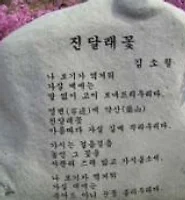 진달래꽃
김소월
나 보기가 역겨워
가실 때에는
말 없이 고이 보내드리우리다.
영변(寧邊)에 약산(藥山)
진달래꽃
아름따다 가실 길에 뿌리우리다.
가시는 걸음걸음
놓인 그 꽃을
사뿐히 즈려 밟고 가시옵소서.
나 보기가 역겨워
가실 때에는
죽어도 아니 눈물 흘리우리다.